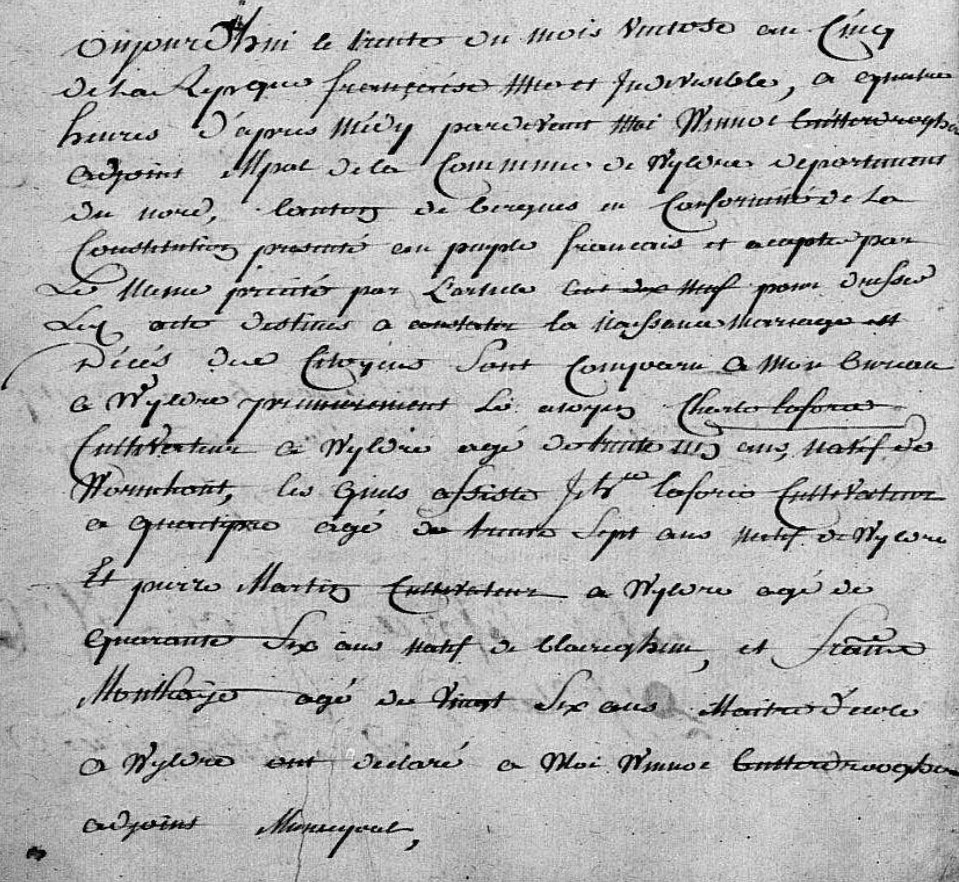 aujourdhui le trente du mois vintose an Cinq
de La Repque francoise une et Indivisible, a quatre
heures d'apres Midy pardevant Moi Winnoc
adjoint Mpal de la Commune de Wyldre departement
du nord, Canton de bergues en Conformité de La
Constitution presenté au peuple francais et acepte par
Le Meme precité par L'article Cent dix Neuf pour dressé
Les acte destines a constater la Naissance Marriage et
décés des Citoyens Sont Comparu a Mon bureau
a Wyldre premierement Le citoyen Charle laforce
Cultivateur a Wyldre agé de trente un ans, Natif de
Wormhout, les quels assiste laforce Cultivateur
a quaetypre agé de trente Sept ans Natif de Wyldre
Et pierre Martin Cultivateur a Wyldre agé de
quarante Six ans Natif de , et
Monthaye agé de vingt Six ans Maitre d'ecole
a Wyldre ont declaré a Moi Winnoc
adjoint